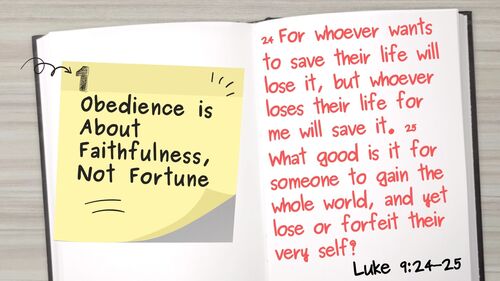 1
Obedience is
About
Faithfulness,
Not Fortune
24 For whoever wants
to save their life will
lose it, but whoever
loses their life for
me will save it. 25
What good is it for
someone to gain the
whole world, and yet
lose or forfeit their
very self?
Luke 9:24-25